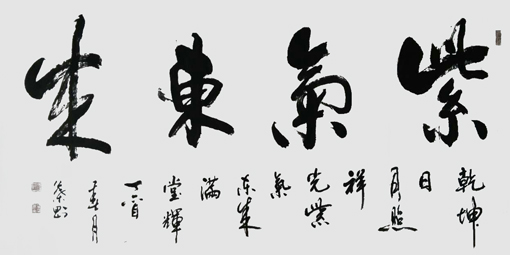 紫氣東來
乾坤
日
月照
祥
光紫
氣
東來
滿
堂輝
丁酉